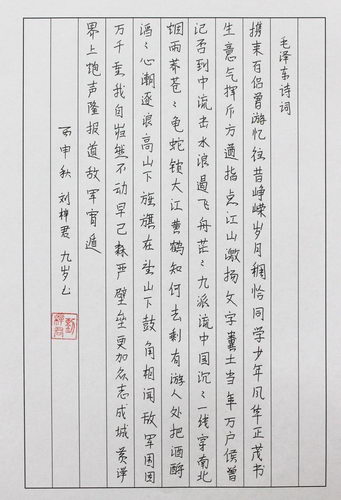 毛泽东诗词
携来百侣曾游忆往昔峥嵘岁月稠恰同学少年风华正茂书
生意气挥斥方遒指点江山激扬文字粪土当年万户侯曾
记否到中流击水浪遏飞舟茫〻九派流中国沉〻一线穿南北
烟雨莽苍〻龟蛇锁大江黄鹤知何去剩有游人处把酒酹
滔〻心潮逐浪高山下旌旗在望山下鼓角相闻敌军围困
万千重我自岿然不动早已森严壁垒更加众志成城黄洋
界上炮声隆报道敌军宵遁
丙申秋 刘梓君 九岁